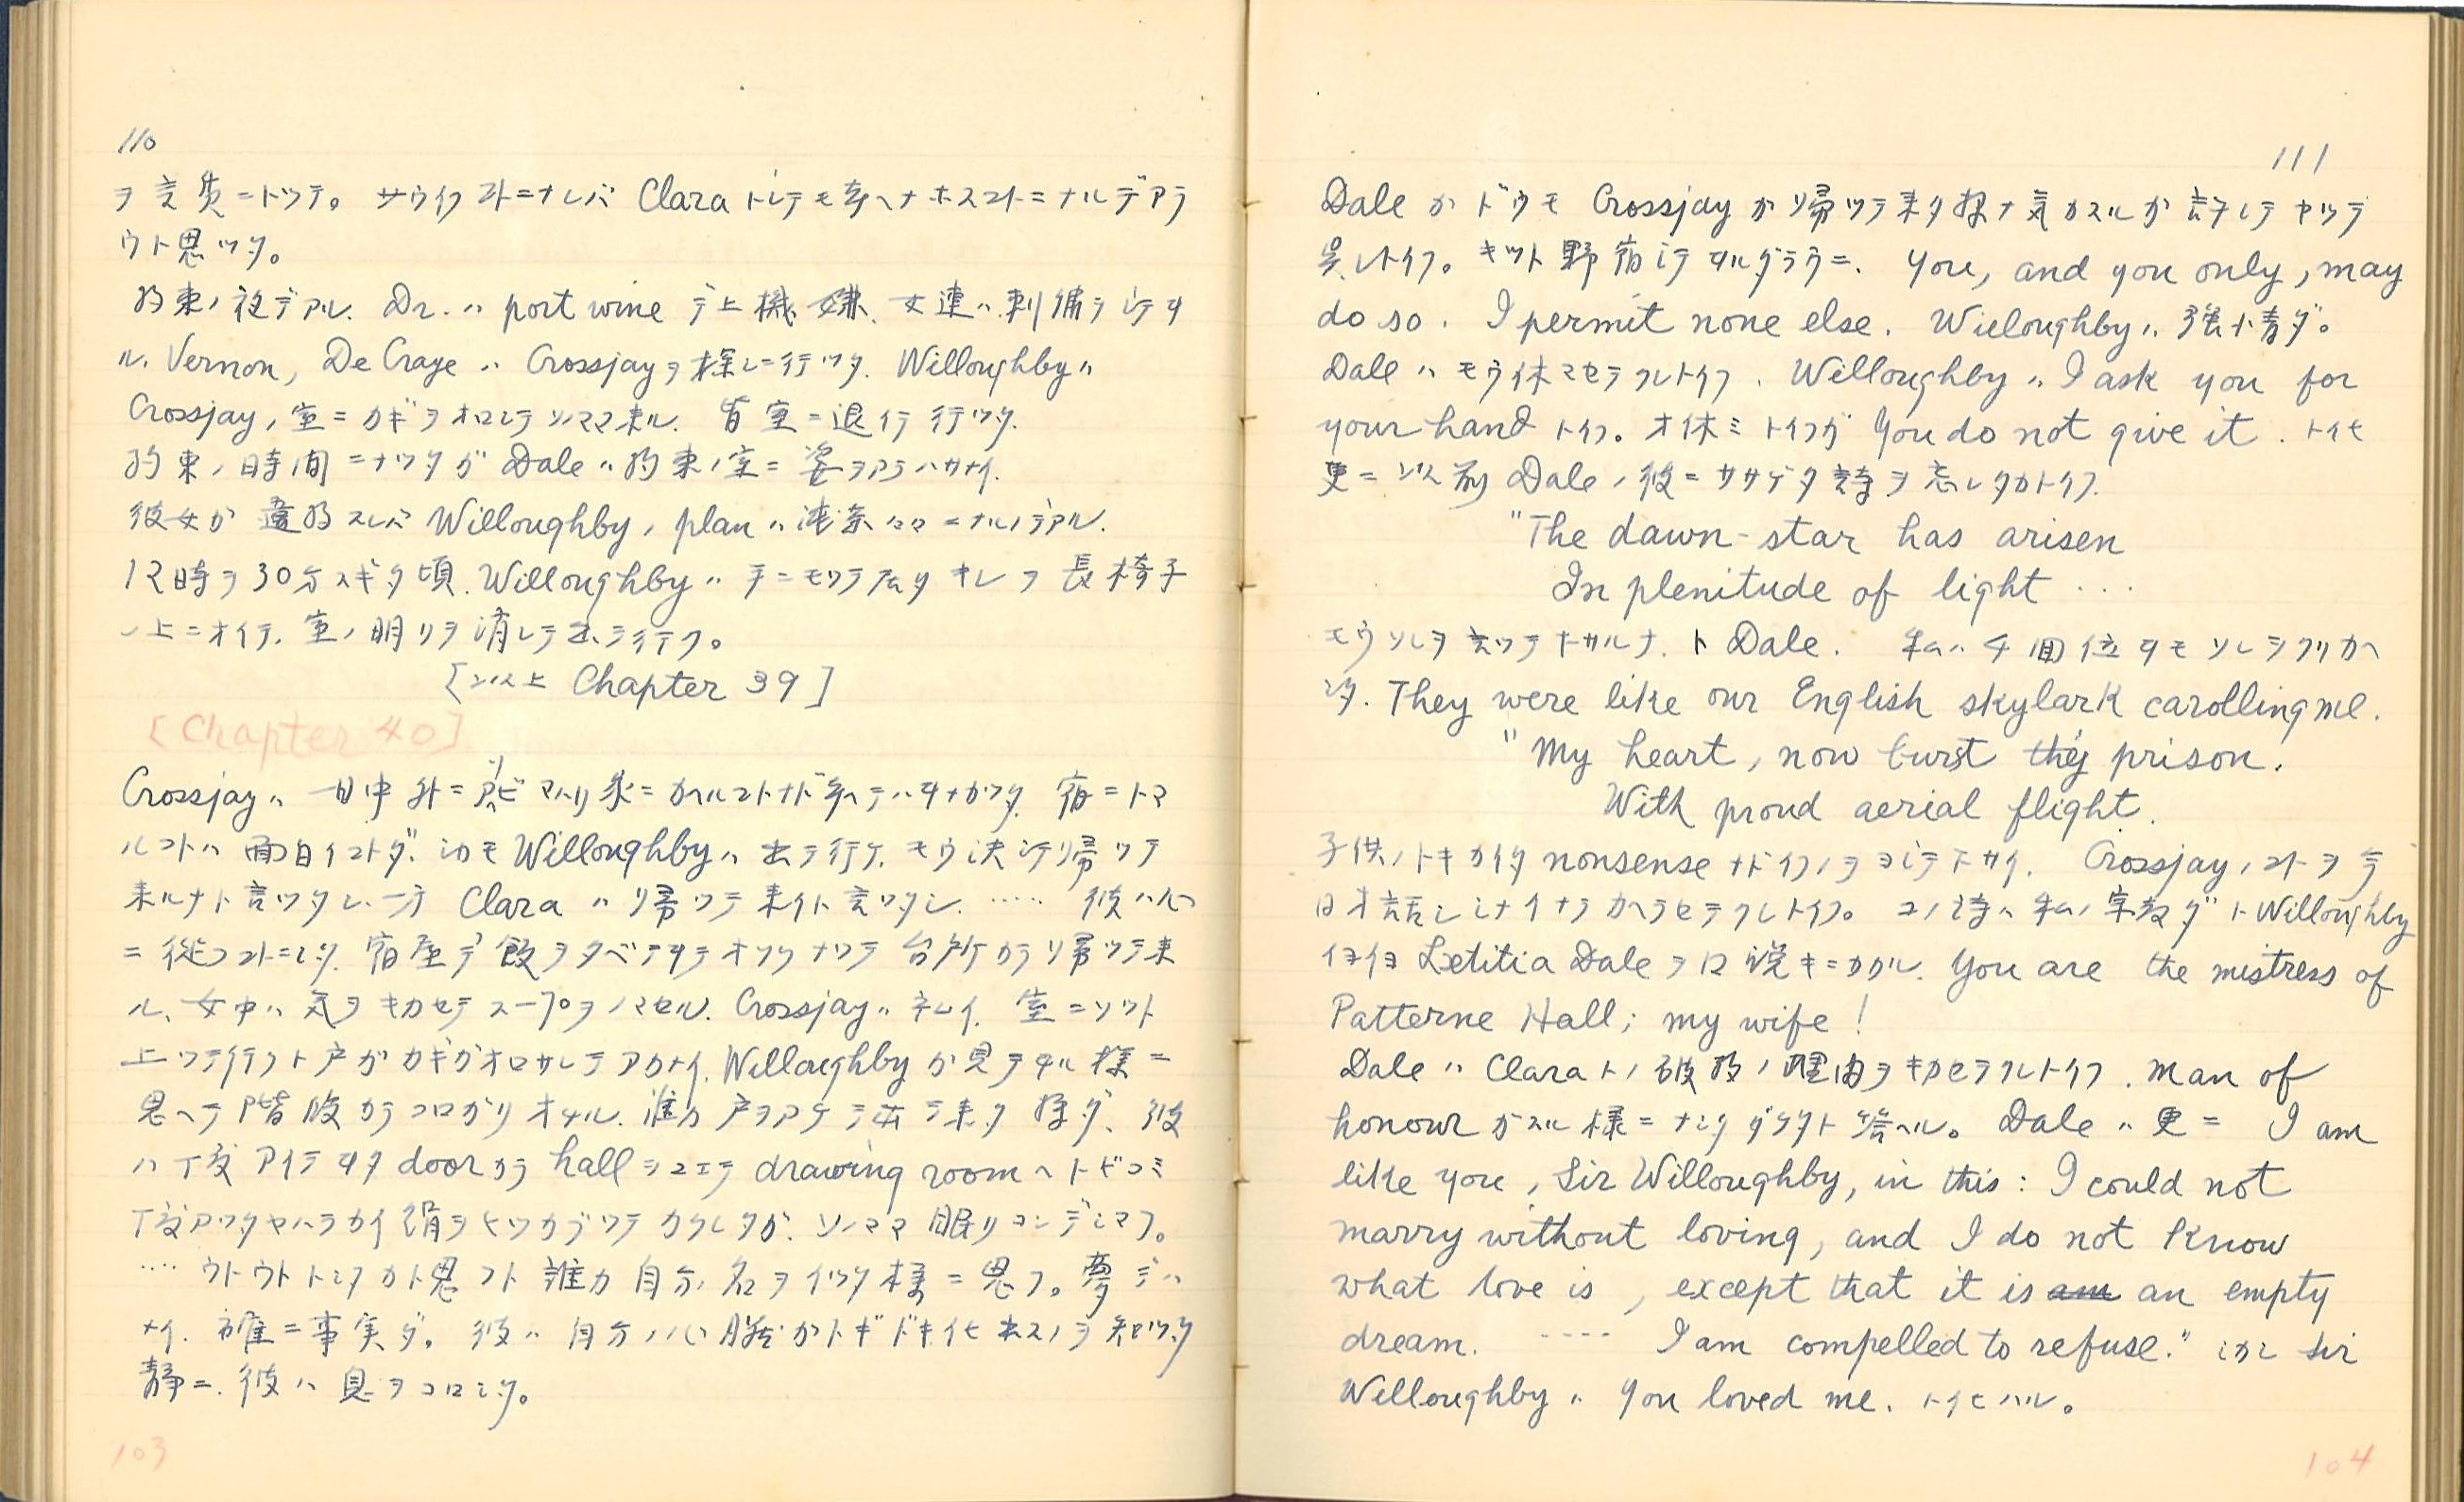 110
ヲ言質ニトツテ。サウイフコトニナレバ Clara トシテモ考ヘナホスコトニナルデアラ
ウト思ツタ。
約束ノ夜デアル. Dr. ハ port wine デ上機嫌、女連ハ刺繍ヲシテヰ
ル. Vernon, De Craye ハ Crossjay ヲ探シニ行ツタ. Willoughby ハ
Crossjay ノ室ニカギヲオロシテソノママ来ル. 皆室ニ退イテ行ツタ.
約束ノ時間ニナツタガ Dale ハ約束ノ室ニ姿ヲアラハサナイ.
彼女ガ違約スレバ Willoughby ノ plan ハ滅茶々々ニナルノデアル.
12時ヲ30分スギタ頃. Willoughby ハ手ニモツテ居タキレヲ長椅子
ノ上ニオイテ. 室ノ明リヲ消シテ出テ行ク。
[以上 Chapter 39]
[Chapter 40]
Crossjay ハ一日中外ニ遊ビマハリ家ニカヘルコトナド考ヘテハヰナカツタ. 宿ニトマ
ルコトハ面白イコトダ. シカモ Willoughby ハ出テ行ケ. モウ決シテ帰ツテ
来ルナト言ツタシ. 一方 Clara ハ帰ツテ来イト言ツタシ. ..... 彼ハ心
ニ従フコトニシタ. 宿屋デ飯ヲタベテヰテオソクナツテ台所カラ帰ツテ来
ル、女中ハ気ヲキカセテスープヲノマセル. Crossjay ハネムイ. 室ニソツト
上ツテ行クト戸ガカギガオロサレテアカナイ. Willoughby ガ見テヰル様ニ
思ヘテ階段カラコロガリオチル. 誰カ戸ヲアケテ出テ来タ様ダ、彼
ハ丁度アイテヰタ door カラ hall ヲコエテ drawing room ヘトビコミ
丁度アツタヤハラカイ絹ヲヒツカブツテカクレタガ. ソノママ眠リコンデシマフ。
.... ウトウトトシタカト思フト誰カ自分ノ名ヲイツタ様ニ思フ。夢デハ
ナイ. 確ニ事実ダ。彼ハ自分ノ心臓ガドキドキ化出スノヲ知ツタ
静ニ. 彼ハ息ヲコロシタ。
103
111
Dale ガドウモ Crossjay ガ帰ツテ来タ様ナ気ガスルガ許シテヤツテ
呉レトイフ。キツト野宿シテヰルダラウニ. You, and you only, may
do so. I permit none else. Willoughby ハ強情ダ。
Dale ハモウ休マセテクレトイフ. Willoughby ハ I ask you for
your hand トイフ。オ休ミトイフガ You do not give it. トイヒ
更ニ以前 Dale ノ彼ニササゲタ詩ヲ忘レタカトイフ.
"The dawn-star has arisen
In plenitude of light ...
モウソレヲ言ツテ下サルナ. ト Dale. 私ハ千回位ヰモソレヲクリカヘ
シタ. They were like our English skylark carolling me.
"My heart, now burst thy prison.
With proud aerial flight.
子供ノトキカイタ nonsense ナドイフノヲヨシテ下サイ. Crossjay ノコトヲ今
日オ話シシナイナラカヘラセテクレトイフ。コノ詩ハ私ノ宗教ダト Willoughby
イヨイヨ Lætitia Dale ヲ口説キニカカル. You are the mistress of
Patterne Hall; my wife!
Dale ハ Clara トノ破約ノ理由ヲキカセテクレトイフ. Man of
honour ガスル様ニナシタダケダト答ヘル。 Dale ハ更ニ I am
like you, Sir Willoughby, in this: I could not
marry without loving, and I do not know
what love is, except that it is am an empty
dream. ---- I am compelled to refuse." シカシ Sir
Willoughby ハ You loved me. トイヒハル。
104